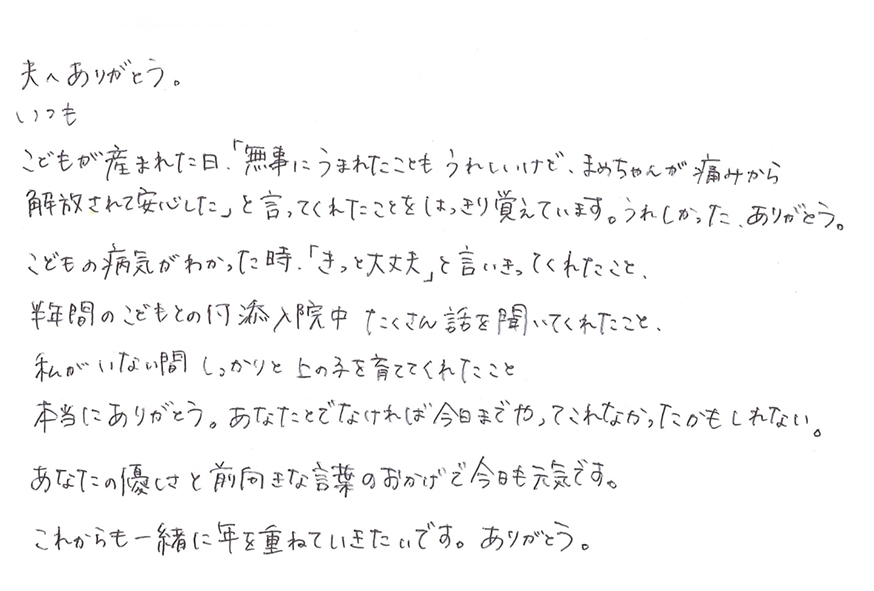 夫へありがとう。
いつも
こどもが産まれた日、「無事にうまれたことも うれしいけど、まめちゃんが痛みから
解放されて安心した」と言ってくれたことをはっきり覚えています。うれしかった、ありがとう。
こどもの病気がわかった時、「きっと大丈夫」と言いきってくれたこと、
半年間のこどもとの付添入院中 たくさん話を聞いてくれたこと、
私がいない間 しっかりと 上の子を育ててくれたこと
本当にありがとう。あなたとでなければ今日までやってこれなかったかもしれない。
あなたの優しさと前向きな言葉のおかげで今日も元気です。
これからも一緒に年を重ねていきたいです。ありがとう。